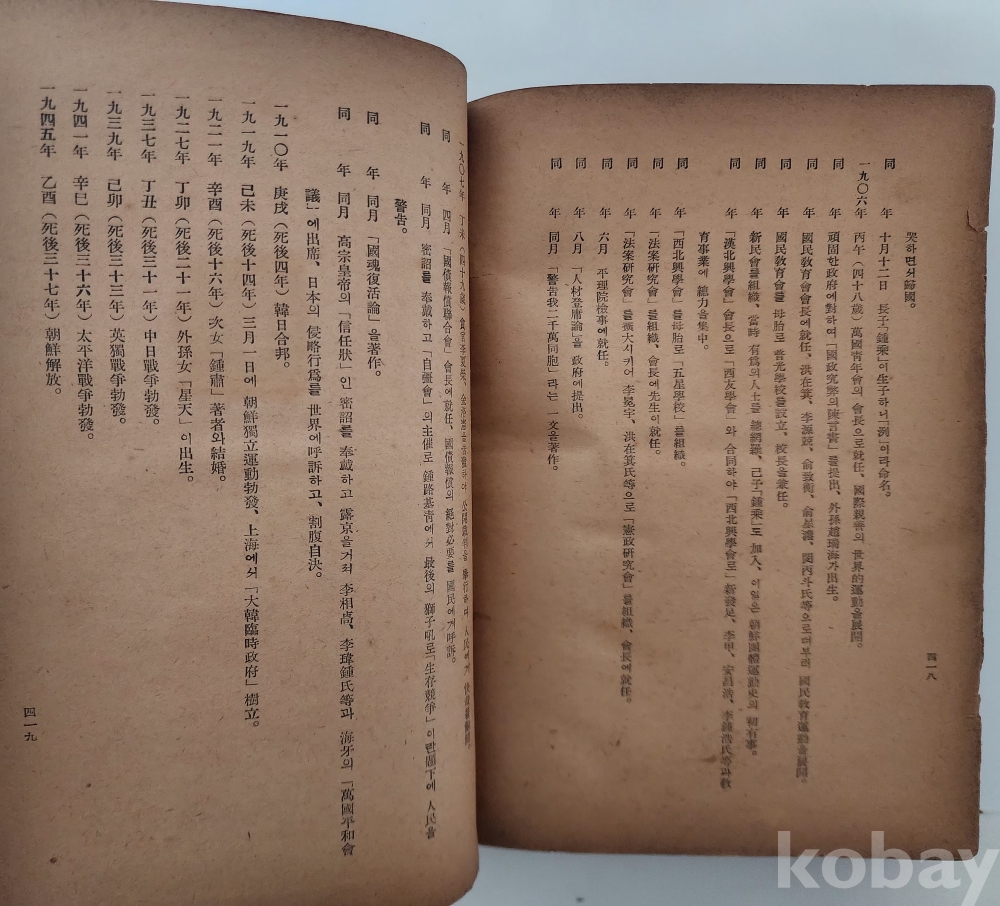 哭하면서歸國。
同 年 十月十二日 長子「鍾乘」이生子하니「洌」이라命名。
一九〇六年 丙午（四十八歲）萬國靑年會의 會長으로就任、國際親善의 世界的運動을展開。
同 年 頑固한政府에對하여「國政究弊의陳言書」를提出、外孫趙瑞海가出生。
同 年 國民敎育會會長에就任、洪在箕、李源兢、兪致衡、兪星濬、閔丙斗氏等으로더부러 國民敎育運動을展開。
同 年 國民敎育會를 母胎로 普光學校를設立、校長을兼任。
同 年 新民會를組織、當時 有爲의人士를 總網羅、己子「鍾乘」도 加入、이일은 朝鮮團體運動史의 初有事。
同 年 「漢北興學會」會長으로「西友學會」와 合同하야「西北興學會로」新發足、李甲、安昌浩、李鍾浩氏等과敎
育事業에 總力을集中。
同 年 「西北興學會」를母胎로「五星學校」를組織。
同 年 「法案硏究會」를組織、會長에先生이就任。
同 年 「法案硏究會」를擴大시키어 李冕宇、洪在箕氏等으로「憲政硏究會」를組織、會長에就任。
同 年 六月 平理院檢事에就任。
同 年 八月 「人材登庸論」을 政府에提出。
同 年 同月 「警告我二千萬同胞」라는 一文을著作。
四一八
一九〇七年 丁未（四十九歲）
同 年 四月 「國債報償聯合會」會長에就任、國債報償의 絕對必要를 國民에게呼訴。
同 年 同月 密詔를奉戴하고「自强會」의主催로 鍾路基靑에서 最後의 獅子吼로「生存競爭」이란題下에 人民을
警告。
同 年 同月 「國魂復活論」을著作。
同 年 同月 高宗皇帝의「信任狀」인 密詔를 奉戴하고 露京을거처 李相卨、李瑋鍾氏等과 海牙의「萬國平和會
議」에出席、日本의 侵略行爲를 世界에呼訴하고、割腹自決。
一九一〇年 庚戌（死後四年）韓日合邦。
一九一九年 己未（死後十四年）三月一日에 朝鮮獨立運動勃發、上海에서「大韓臨時政府」樹立。
一九二一年 辛酉（死後十六年）次女「鍾肅」著者와結婚。
一九二七年 丁卯（死後二十一年）外孫女「星天」이出生。
一九三七年 丁丑（死後三十一年）中日戰爭勃發。
一九三九年 己卯（死後三十三年）英獨戰爭勃發。
一九四一年 辛巳（死後三十六年）太平洋戰爭勃發。
一九四五年 乙酉（死後三十七年）朝鮮解放。
四一九
kobay